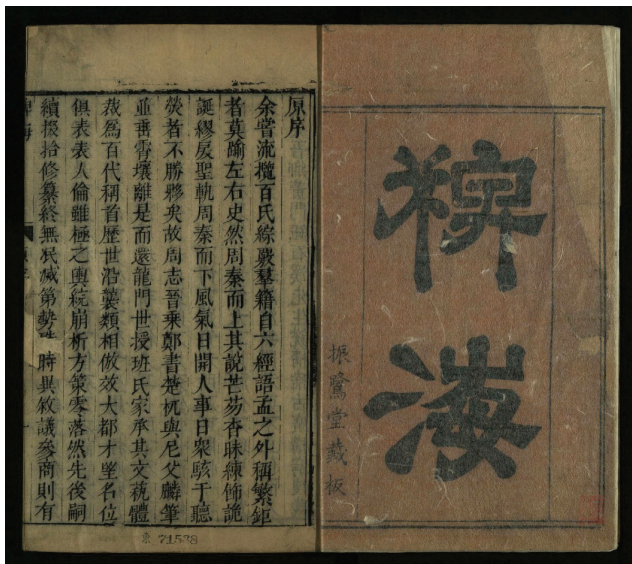 稗海
振鷺堂藏板
原序
余嘗流攬百氏綜覈羣籍自六經語孟之外稱繁鉅
者莫踰左右史然周秦而上其說芒芴杳昧練飾詭
誕繆戾聖軌周秦而下風氣日開人事日衆駭于聽
熒者不勝夥矣故周志晉乗鄭書楚杌與尼父麟筆
並垂霄壤離是而還龍門世授班氏家承其文蓺體
裁爲百代稱首歷世沿襲類相倣效大都才壂名位
俱表表人倫雖極之輿統崩析方策零落然先後嗣
續掇拾修纂終無泯滅第勢 時異敘議參商則有
稗海
東 71538